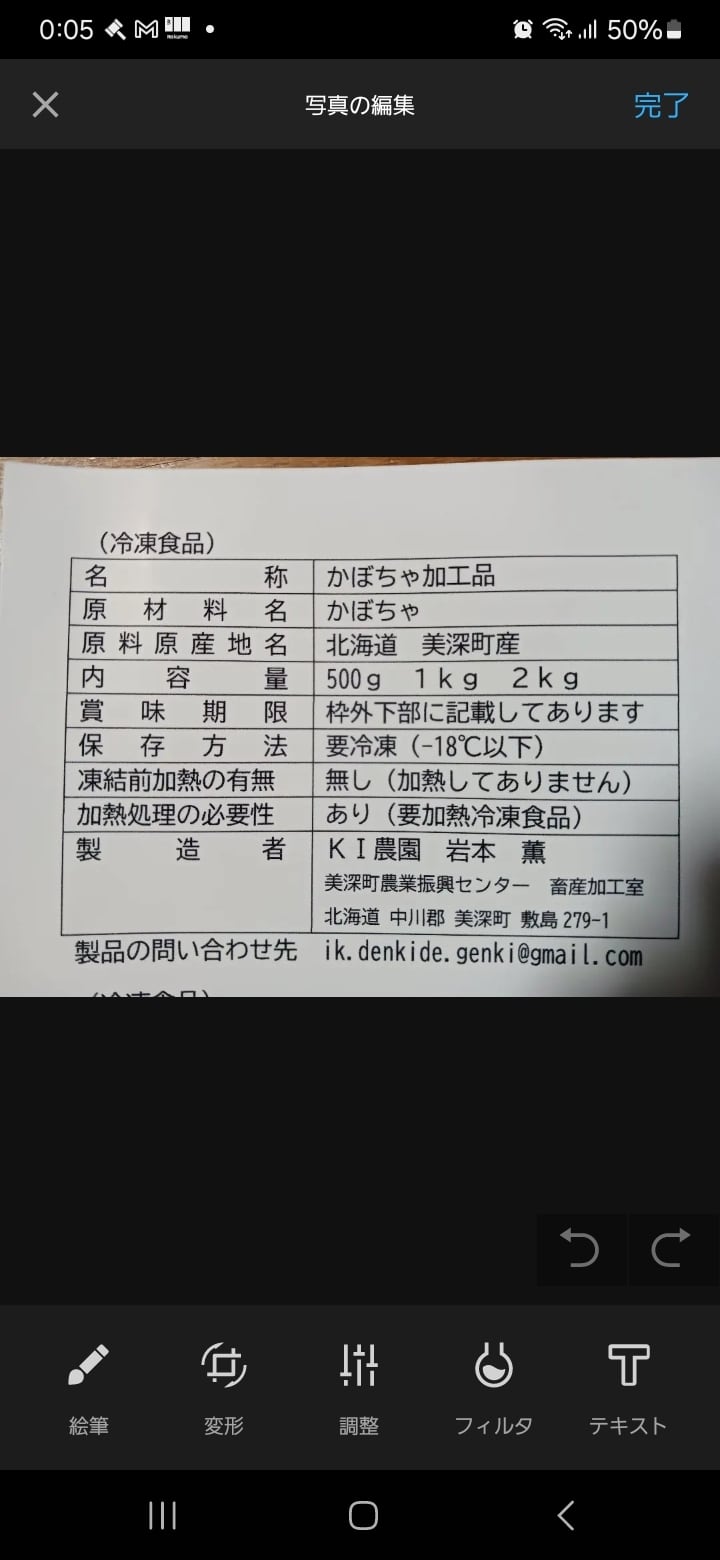 0:05
50%
写真の編集
完了
（冷凍食品）
名称 かぼちゃ加工品
原材料名 かぼちゃ
原料原産地名 北海道 美深町産
内容量 500g 1kg 2kg
賞味期限 枠外下部に記載してあります
保存方法 要冷凍（-18℃以下）
凍結前加熱の有無 無し（加熱してありません）
加熱処理の必要性 あり（要加熱冷凍食品）
製造者 KI農園 岩本 薫
美深町農業振興センター 畜産加工室
北海道 中川郡 美深町 敷島279-1
製品の問い合わせ先 ik.denkide.genki@gmail.com
（冷凍食品）
絵筆
変形
調整
フィルタ
テキスト